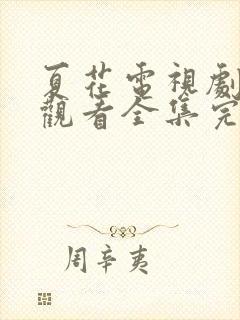 夏花電視劇
觀看全集完
周辛夷